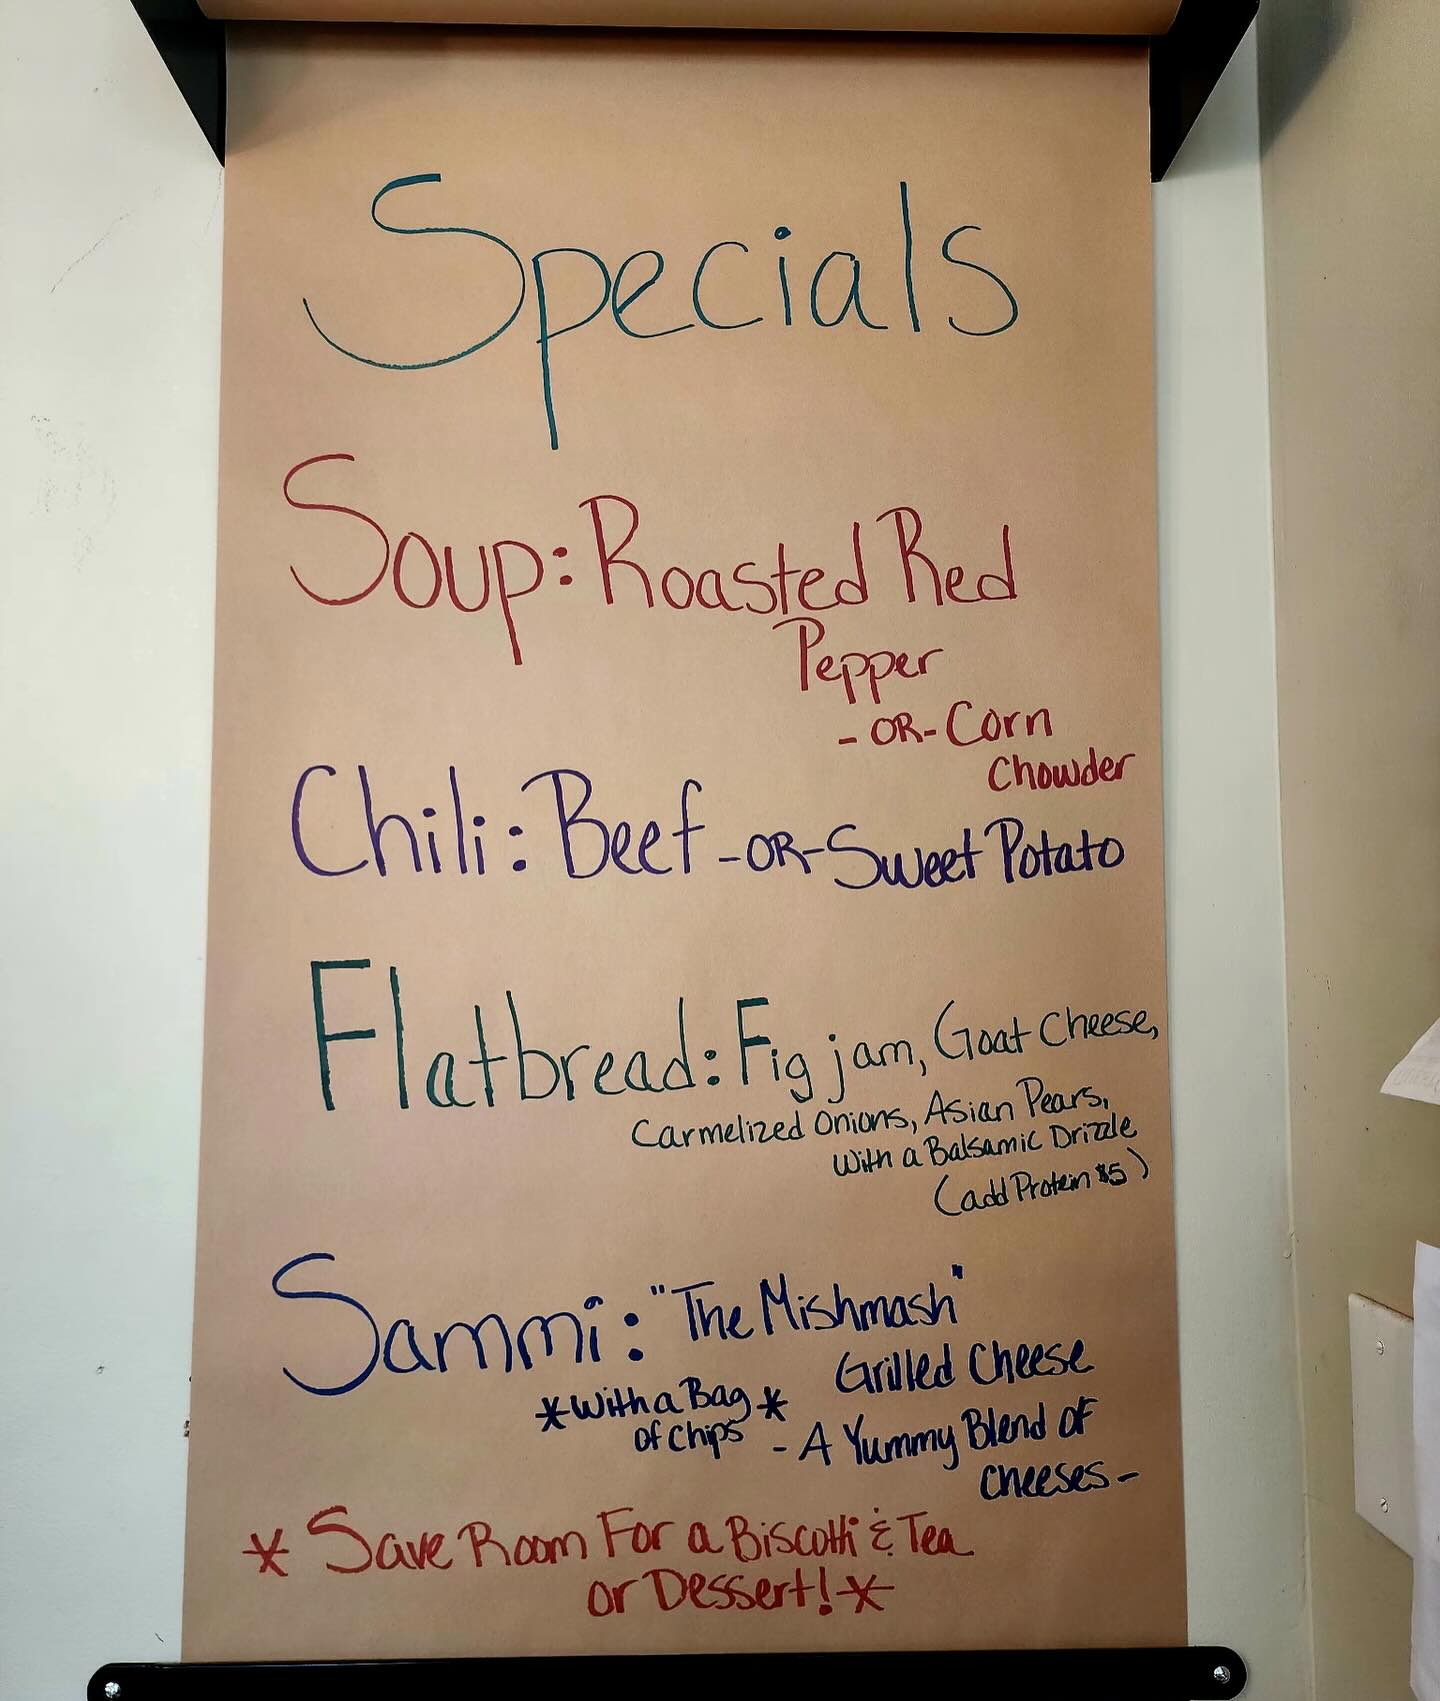 Specials
Soup: Roasted Red
Pepper
- OR - Corn
Chowder
Chili: Beef - OR - Sweet Potato
Flatbread: Fig jam, Goat Cheese,
Carmelized Onions, Asian Pears,
With a Balsamic Drizzle
(add Protein $5)
Sammi: "The Mishmash"
Grilled Cheese
*With a Bag *
of Chips
- A Yummy Blend of
Cheeses -
* Save Room For a Biscotti & Tea
or Dessert! *